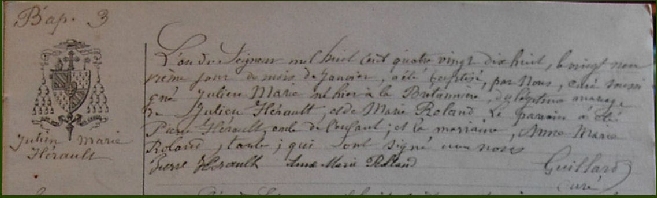 Bap. 3
Julien Marie
Hérault
L'an du Seigneur mil huit cent quatre vingt dix huit, le vingt neu
vième jour du mois de Janvier, a été baptisé, par Nous, curé soussi
gné Julien Marie né hier à la Bretonnière, du légitime mariage
de Julien Hérault, et de Marie Roland. Le parrain a été
Pierre Hérault, oncle de l'enfant; et la marraine, Anne Marie
Roland, tante; qui ont signé avec nous
Pierre Hérault Anne Marie Rolland Guillard
curé